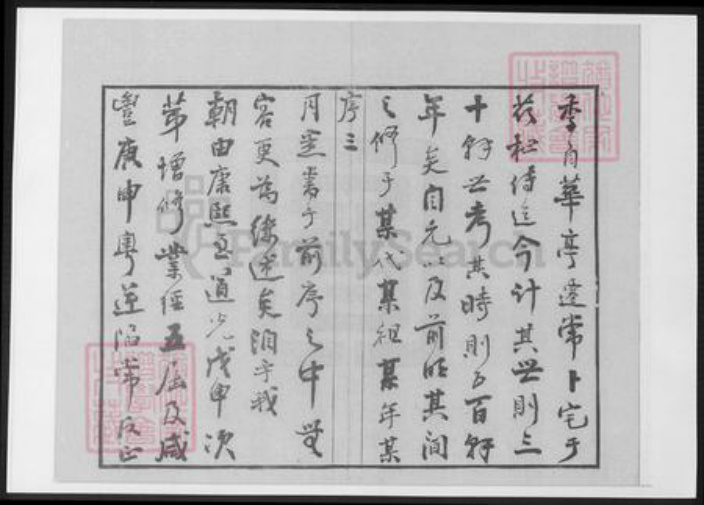 季自華亭遷常卜宅于
茲
迄今計其世則三
十餘世考其時則五百餘
年矣自元以及前明其間
之修于某代某祖某年某
月並書于前序之中無
容更為縷述矣洎乎我
朝由康熙至道光戊申次
第增修業經五屆及咸
豐庚申粵逆陷常
序三
FamilySearch